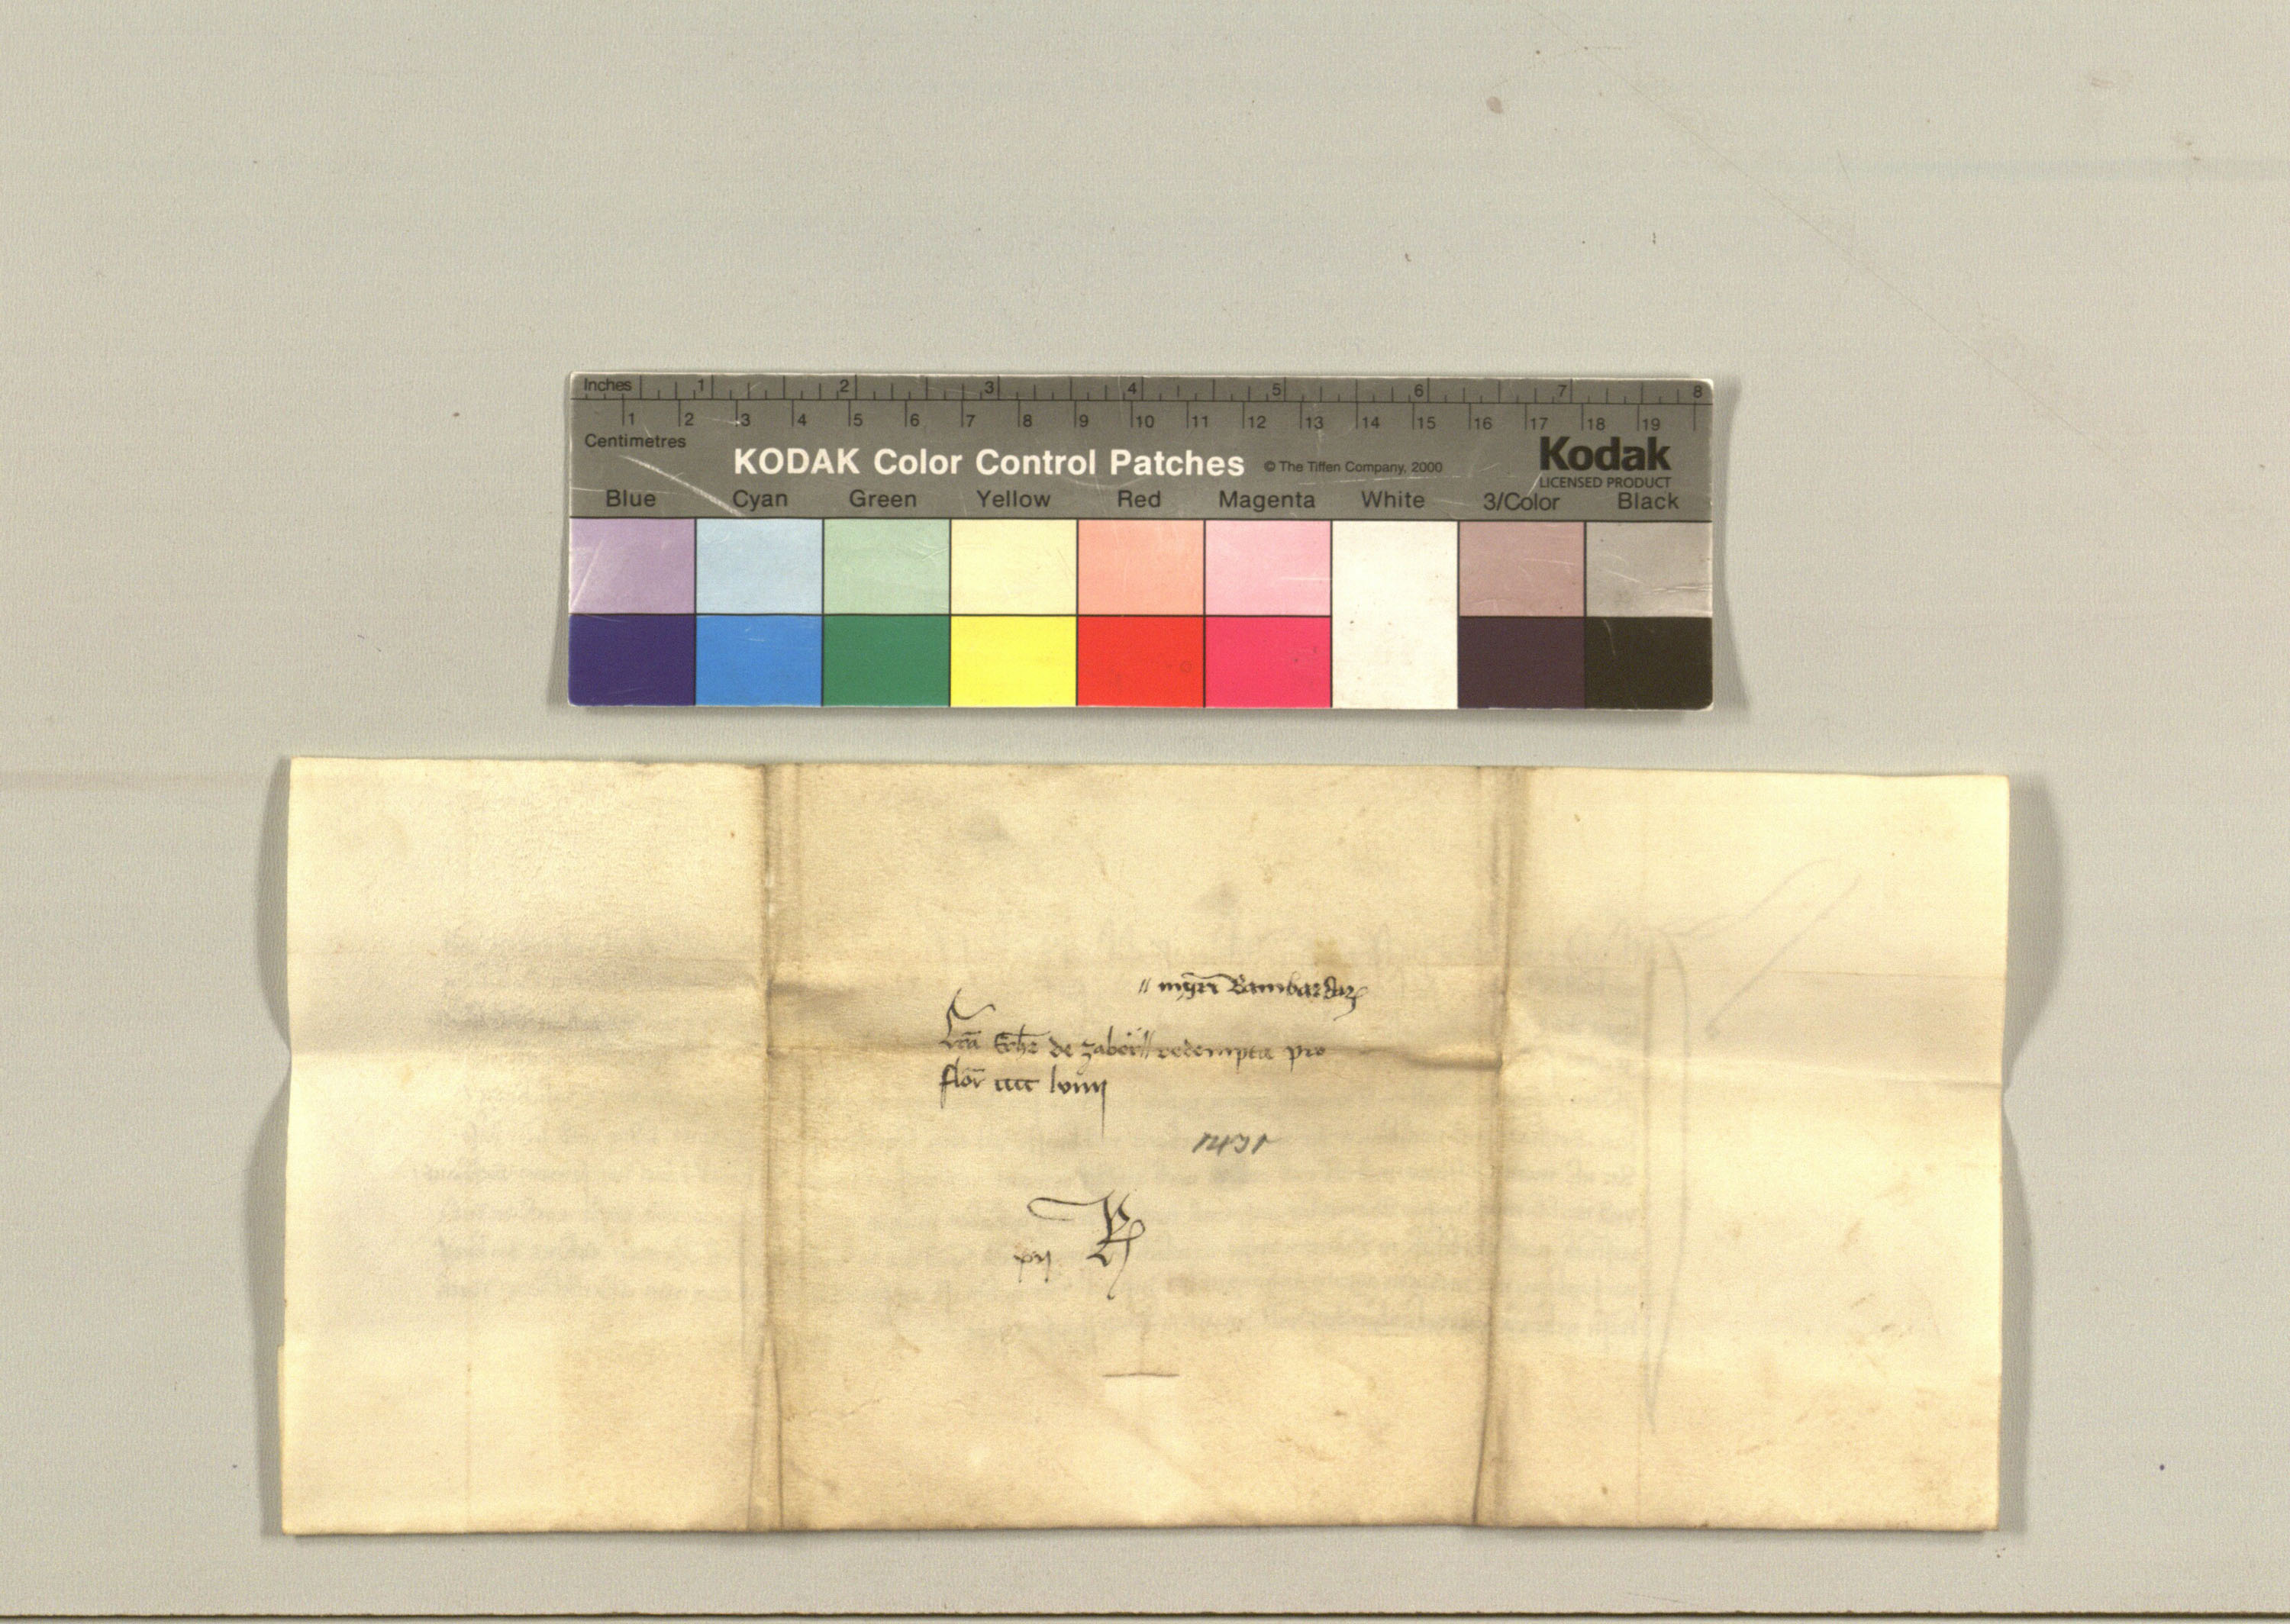 Inches 1 2 3 4 5 6 7 8
1 2 3 4 5 6 7 8 9 10 11 12 13 14 15 16 17 18 19
Centimetres
KODAK Color Control Patches © The Tiffen Company, 2000 Kodak
LICENSED PRODUCT
Blue Cyan Green Yellow Red Magenta White 3/Color Black
// mgri Bambardar
Lra de zabern // redempta pro
flor cccc lviiij
1431